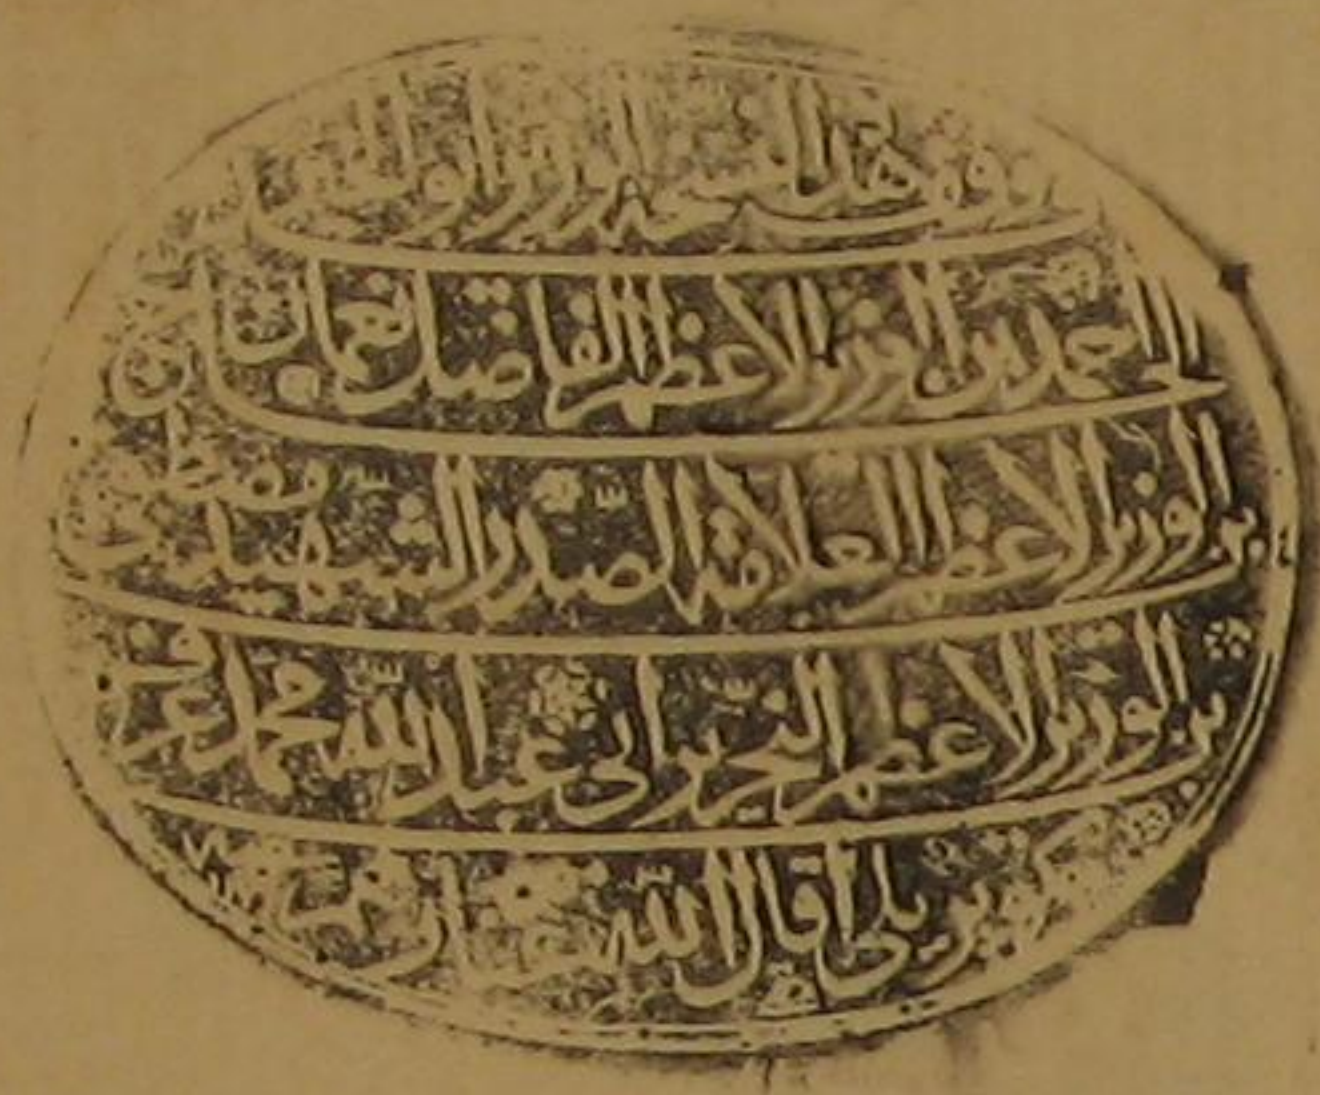 وقف هذا لنسخة الوزير ابو العباس
الحاج احمد بن الوزير الاعظم الفاضل نعمان
بن الوزير الاعظم العلامة الصدر الشهيد مصطفى
بن الوزير الاعظم النحرير ابي عبد الله محمد عرف
بكوپريلي اقال الله عثارهم